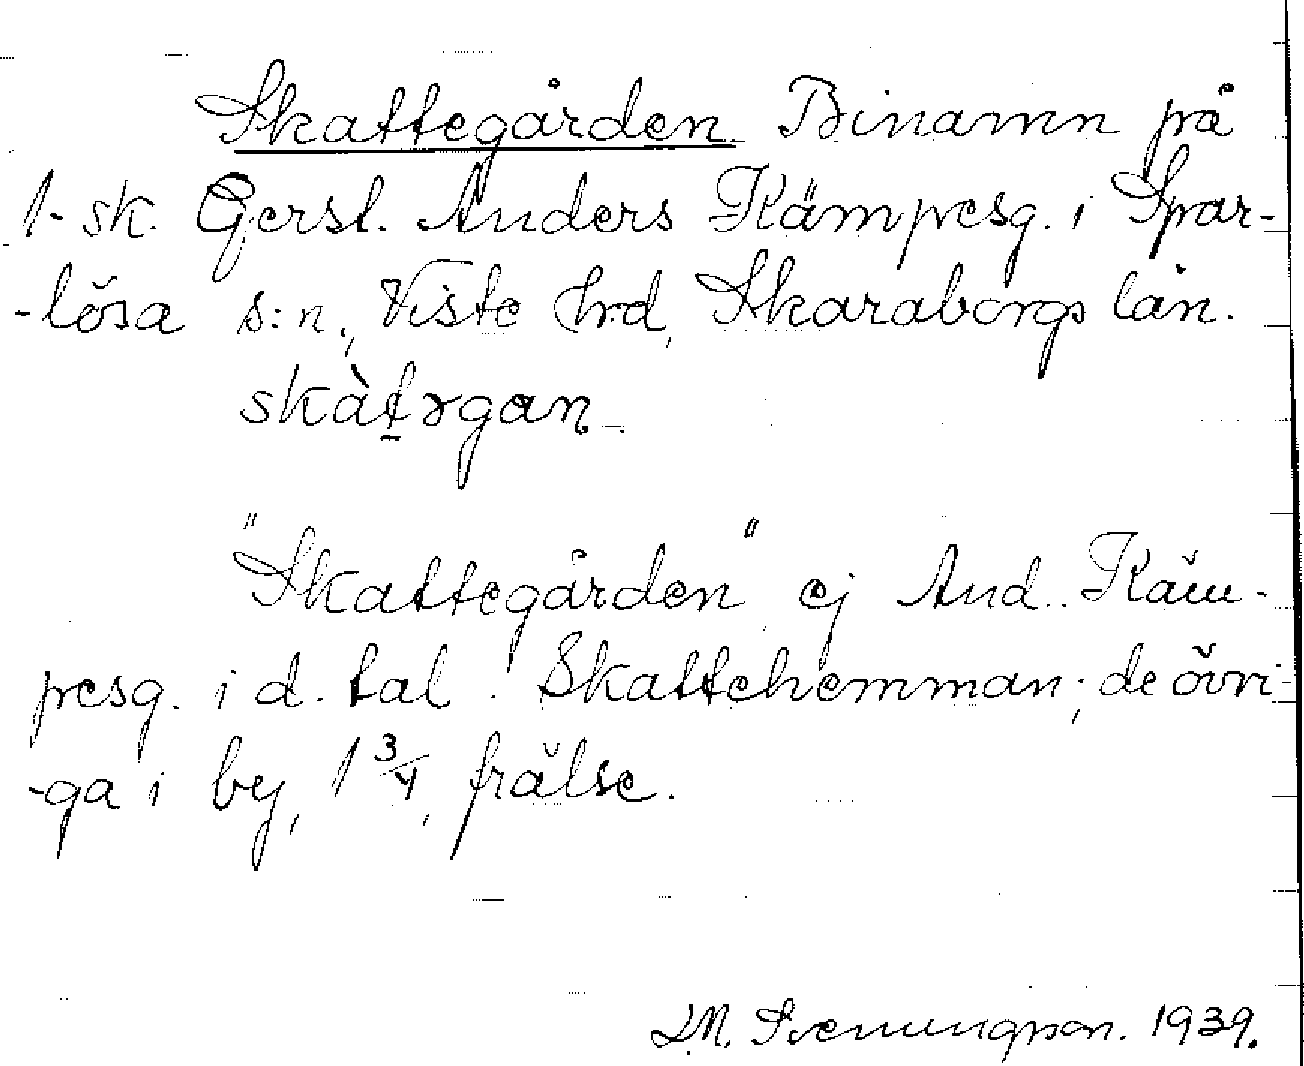 Skattegården. Binamn på
1-sk. Gersl. Anders Kämpesg. i Spar-
-lösa s:n, Viste hrd, Skaraborgs län.
skàt̲ɤgan.
"Skattegården" ej And. Käm-
pesg. i d. tal. Skattehemman; de övri-
-ga i by, 1 3/4, frälse.
J.M. Svenungsson. 1939.